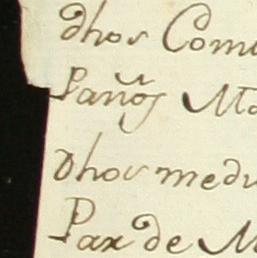 dhos Com
Paños Ma
dhos med
Par de M